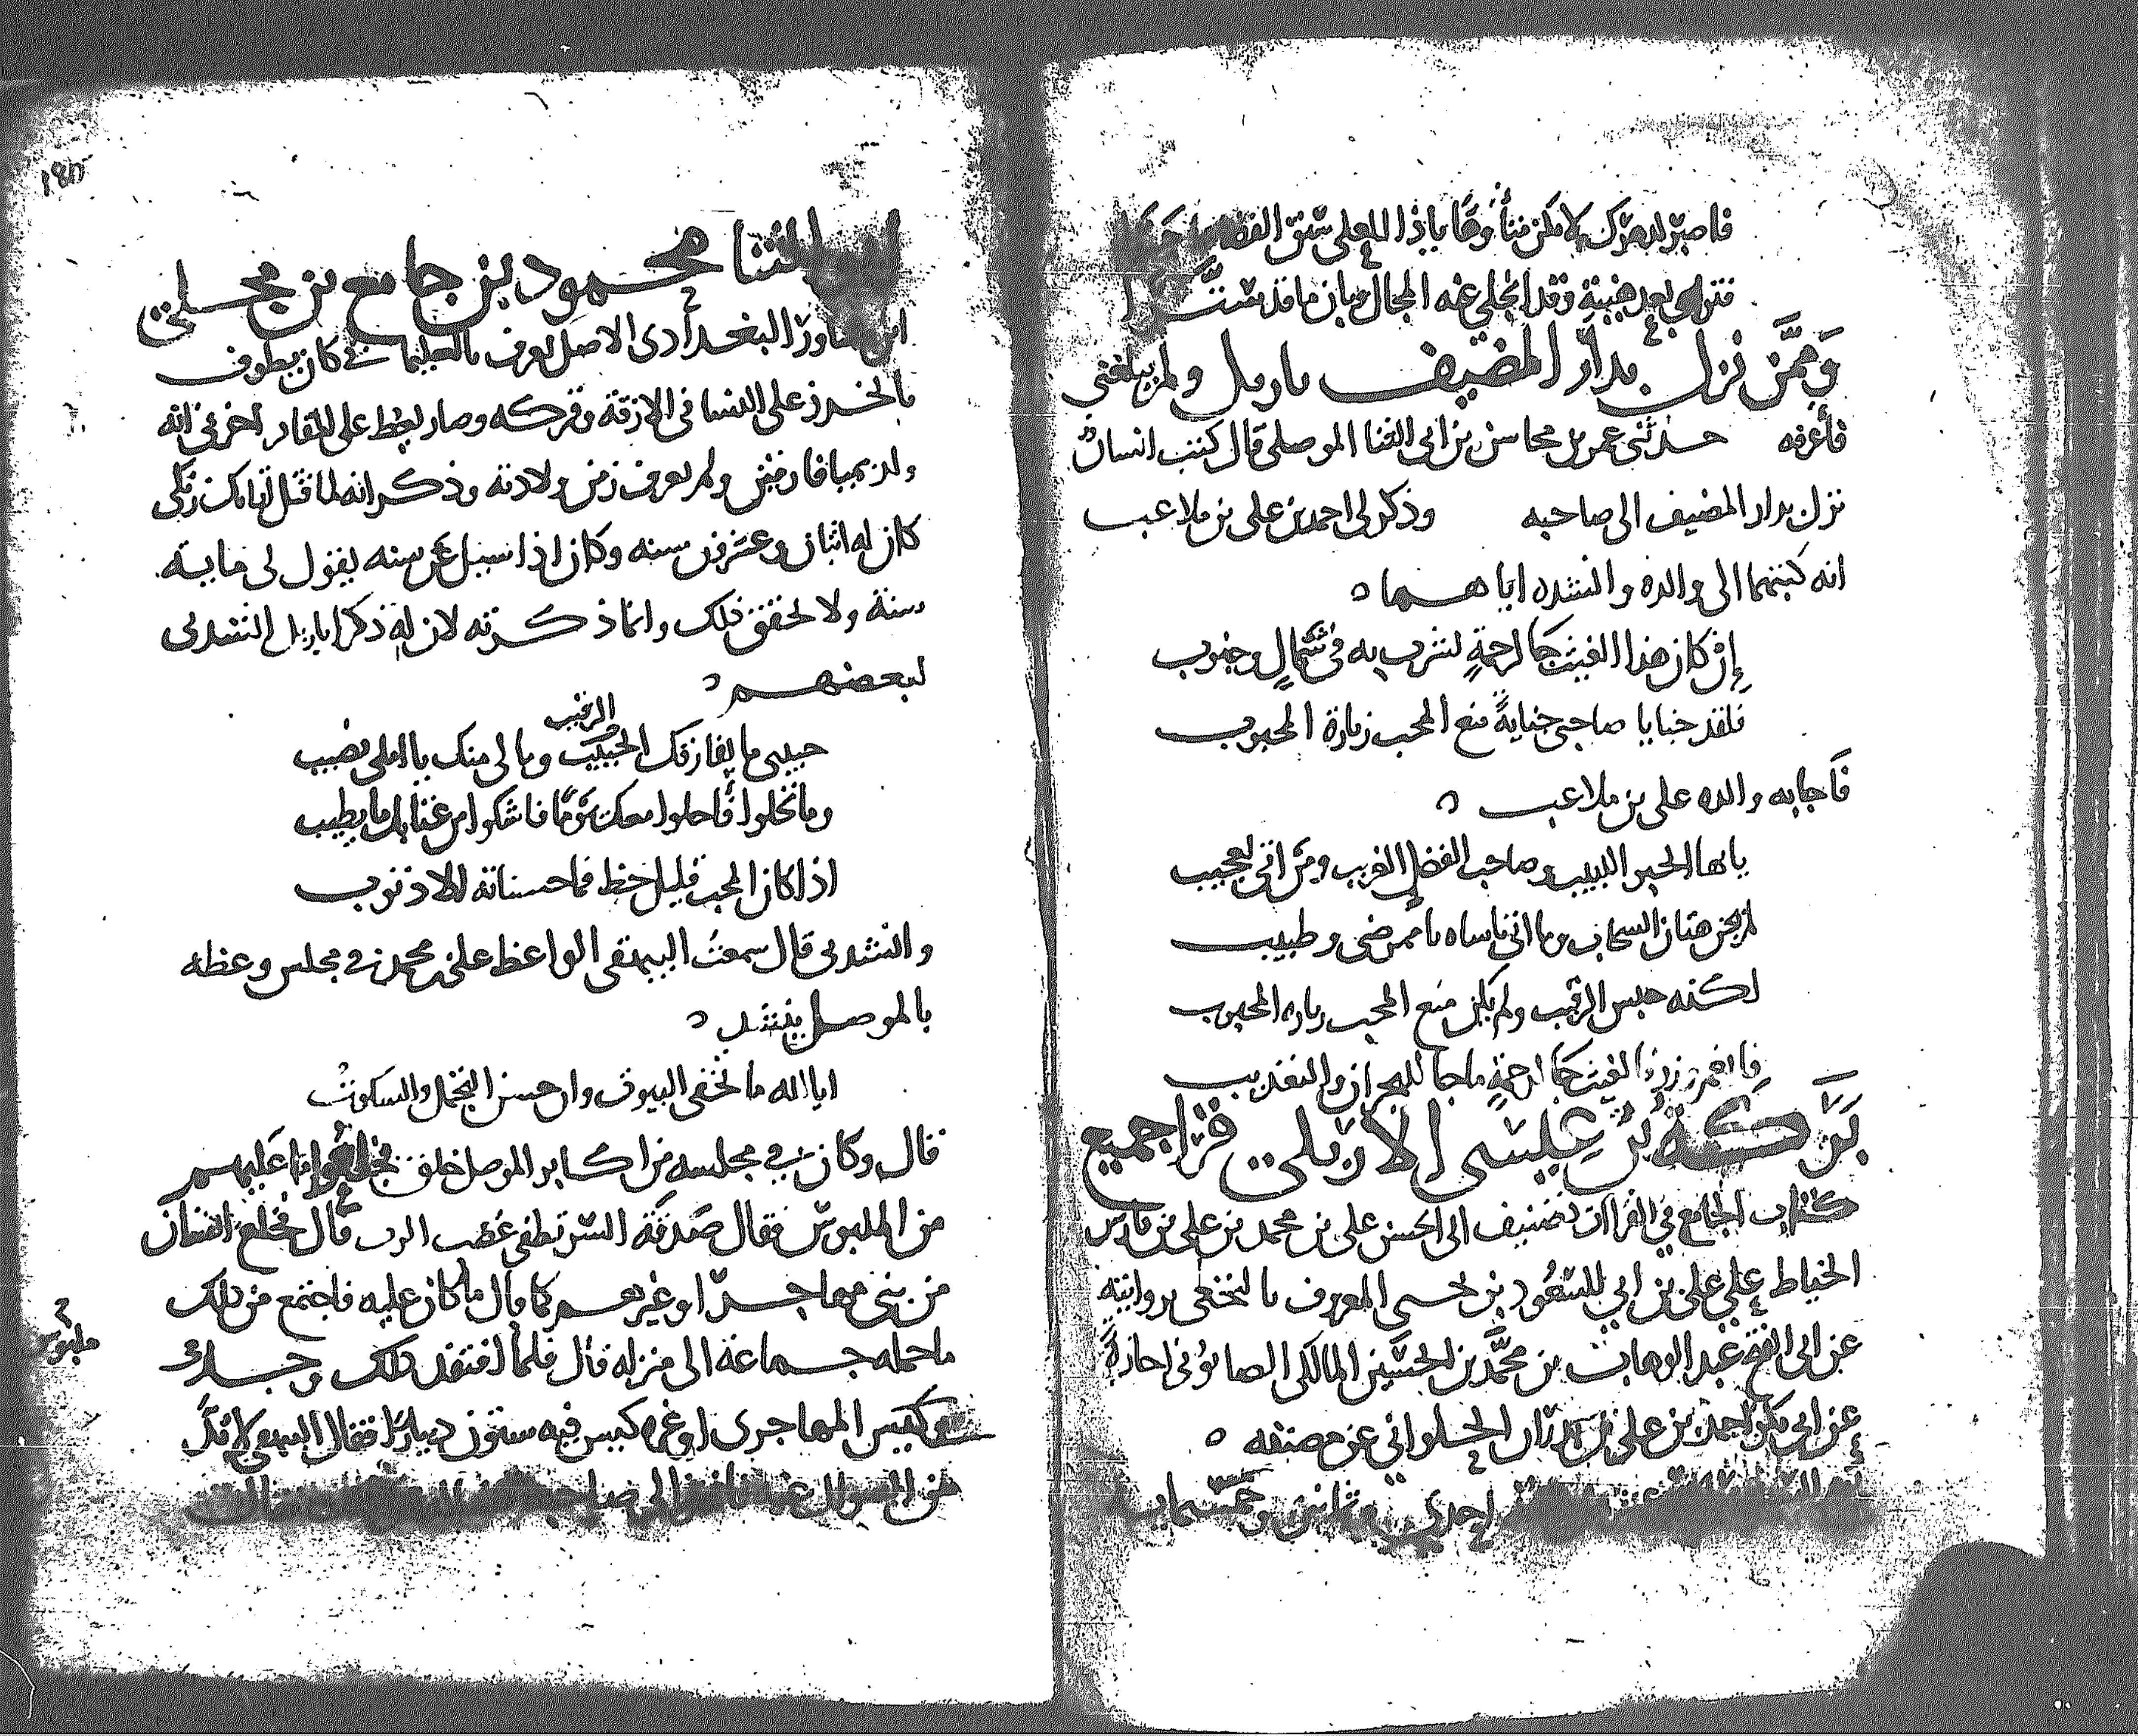 فاصبر لدهرك لا تكن متأوها ياذا المعلي شق
فتراه بعد هنية وقد انجلي عنه المجال وبان ما قد
وممن نزل بدار المضيف باربل ولم يبلغني
فأعرفه حدثني عمر بن محاسن بن ابي القنا الموصلي قال كتب انسان
نزل بدار المضيف الى صاحبه وذكر لي احمد بن علي بن ملاعب
انه كتبهما الى والده وانشده اياهما ه
إن كان هذا الغيث جا لرحمة لشرب به في شمال وجنوب
فلقد جنا يا صاحبي جناية منع المحب زيارة المحبوب
فأجابه والده علي بن ملاعب ه
يا ايها الحبر اللبيب وصاحب الفضل الغريب ومن اتى بعجيب
لم يجن هتان السحاب وما اتى باساه يا ممرضي وطبيب
لكنه حبس الرقيب ولم يكن منع المحب زياره المحبوب
الغيث جا لرحمة ما جا للهجران والتعذيب
بركة بن عيسى الاربلي قرا جميع
كتاب الجامع في القراات تصنيف ابي الحسن علي بن محمد بن علي بن فارس
الخياط علي علي بن ابي السعود بن يحيى المعروف بالنخعي بروايته
عن ابي الفتح عبد الوهاب بن محمد بن الحسين المالكي الصابوني اجازة
عن ابي بكر احمد بن علي بن بدران الحلواني عن مصنفه ه
احدى وثمانين وخمسمايه
١٩٥
ابو الثنا محمود بن جامع بن محلي
ابن البغدادي الاصل يعرف كان يطوف
بالخرز على النسا في الازقة وتركه وصار يعظ على المقابر اخبرني انه
ولد بميافارقين ولم يعرف زمن ولادته وذكر انه لما قتل اتابك زنكي
كان له اثنان وعشرون سنه وكان اذا سيل عن سنه يقول لي مايه
سنة ولا تحقق ذلك وانما ذكرته لان له ذكرا باربل انشدني
لبعضهم ه
الرقيب
حبيبي ما يفارقك الحبيب وما لي منك يا املي نصيب
وما تخلوا فأخلوا معك يوما فاشكوا من عتابك ما يطيب
اذا كان المحب قليل حظ فما حسناته الا ذنوب
وانشدني قال سمعت البيهقي الواعظ علي بن محمد في مجلس وعظه
بالموصل ينشد ه
ايا الله ما تخفي البيوت وان حسن التجمل والسكوت
قال وكان في مجلسه من اكابر الموصل خلق فخلعوا ما عليهم
من الملبوس فقال صدقة السر تطفي غضب الرب قال فخلع انسان
من بني مهاجر او غيرهم كما قال ما كان عليه فاجتمع من ذلك
ما حمله جماعة الى منزله قال فلما افتقد ذلك وجد
ملبوس
كيس المهاجرى او غيره كيس فيه ستون دينارا فقال البيهقي لا بد
من السوال عن